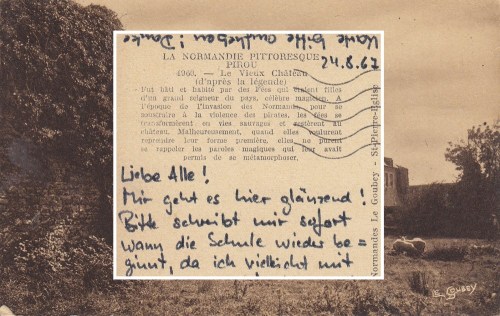 Karte bitte aufheben! Danke
24.8.67
LA NORMANDIE PITTORESQUE
PIROU
4960. — Le Vieux Château
(d'après la légende)
Fut bâti et habité par des Fées qui étaient filles
d'un grand seigneur du pays, célèbre magicien. A
l'époque de l'invasion des Normands, pour se
soustraire à la violence des pirates, les fées se
transformèrent en oies sauvages et restèrent au
château. Malheureusement, quand elles voulurent
reprendre leur forme première, elles ne purent
se rappeler les paroles magiques qui leur avait
permis de se métamorphoser.
Liebe Alle!
Mir geht es hier glänzend!
Bitte schreibt mir sofort
wann die Schule wieder be=
ginnt, da ich vielleicht mit
Normandes Le Goubey - St-Pierre-Eglise
Le Goubey